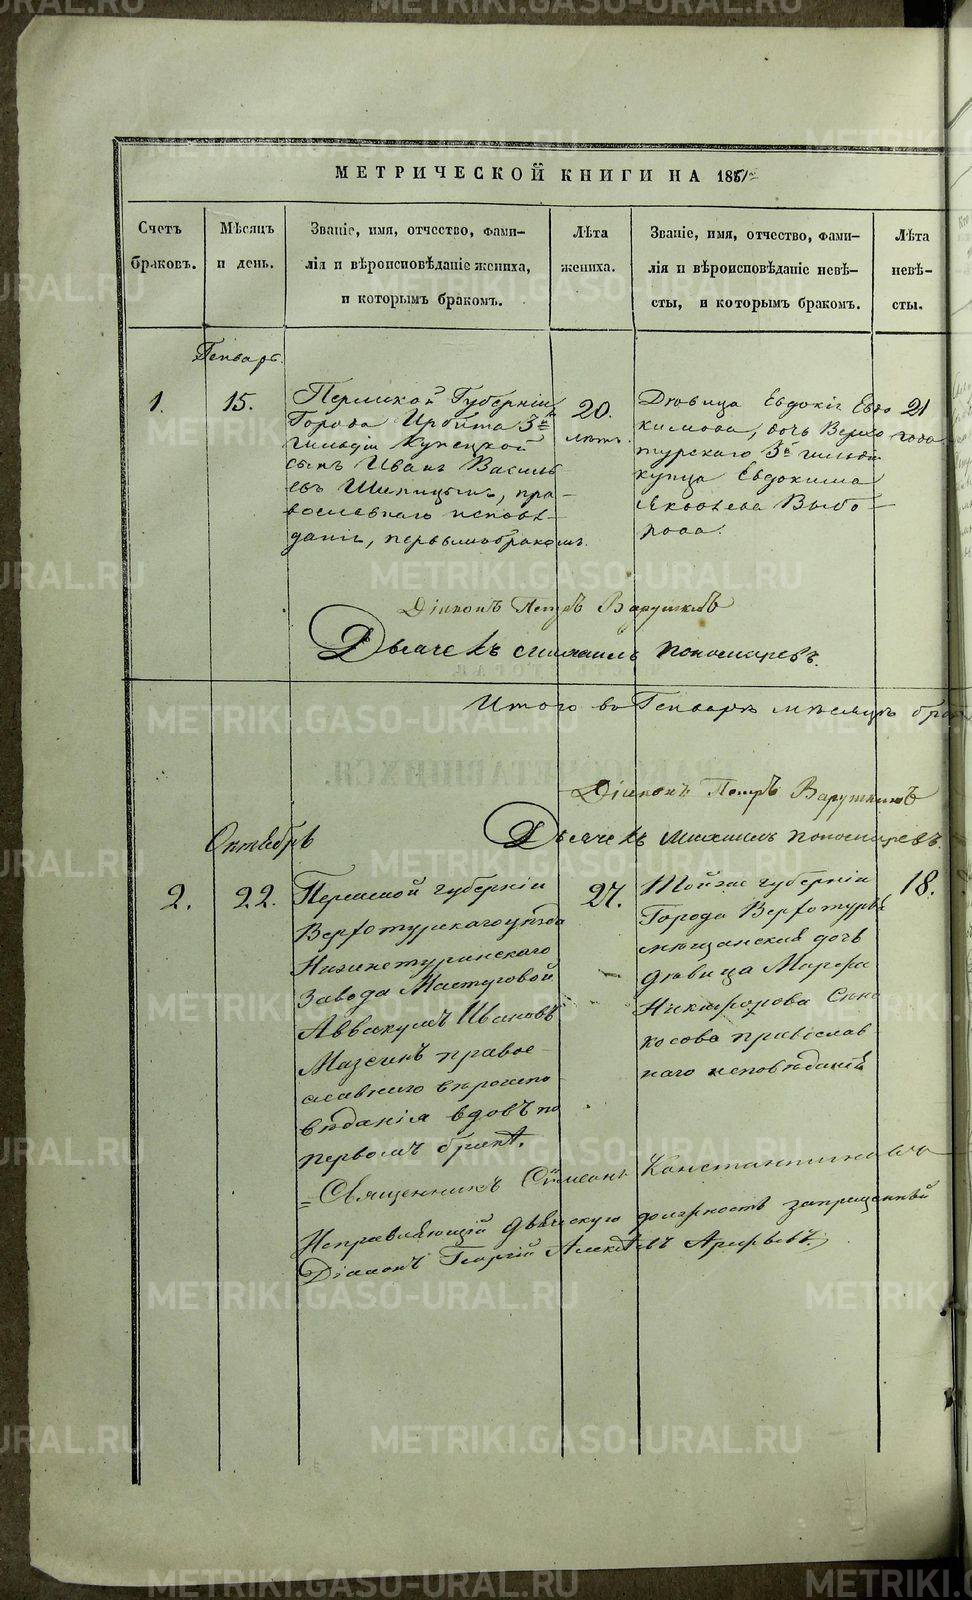 МЕТРИЧЕСКОЙ КНИГИ НА 1851
Счетъ браковъ.
Мѣсяцъ и день.
Званіе, имя, отчество, фами-
лія и вѣроисповѣданіе жениха,
и которымъ бракомъ.
Лѣта жениха.
Званіе, имя, отчество, фами-
лія и вѣроисповѣданіе невѣ-
сты, и которымъ бракомъ.
Лѣта невѣ-
сты.
Генварь
1.
15.
Пермской Губерніи
Города Ирбита 3й
гильдіи Купецкой
сынъ Иванъ Василь
евъ Шипицынъ, пра-
вославнаго исповѣ-
даніе, первымъ бракомъ.
20.
лѣтъ.
Дѣвица Евдокія Евдо
кимова, дочь Верхо
турскаго 3й гильдіи
купца Евдокима
Яковлева Выбо-
рова.
21
года
Діаконъ Петръ Варушкинъ
Дьячекъ Михаилъ Пономаревъ.
Итого въ Генварѣ мѣсяцѣ
Діаконъ Петръ Варушкинъ
Дьячекъ Михаилъ Пономаревъ.
Октябрь
2.
22.
Пермской губерніи
Верхотурскаго уѣзда
Нижнетуринскаго
Завода Мастеровой
Аввакумъ Ивановъ
Мазеинъ правос-
лавнаго вѣроиспо
вѣданія вдовъ по
первомъ бракѣ.
27.
Той же губерніи
Города Верхотурья
мѣщанская дочь
дѣвица Марфа
Никифорова
косова православ
наго исповѣданія
18.
Священникъ Симеонъ Константиновъ
Исправляющій дьяческую должность запрещенный
Діаконъ Георгій Алексѣевъ Арефьевъ.
METRIKI.GASO-URAL.RU